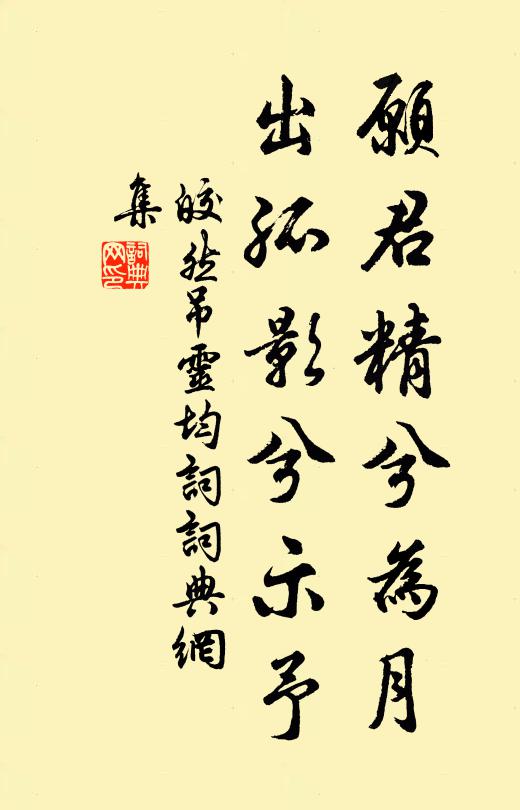 願君精兮為月
出孤影兮示予
皎然吊靈均詞詞典網
集
詞典
网印